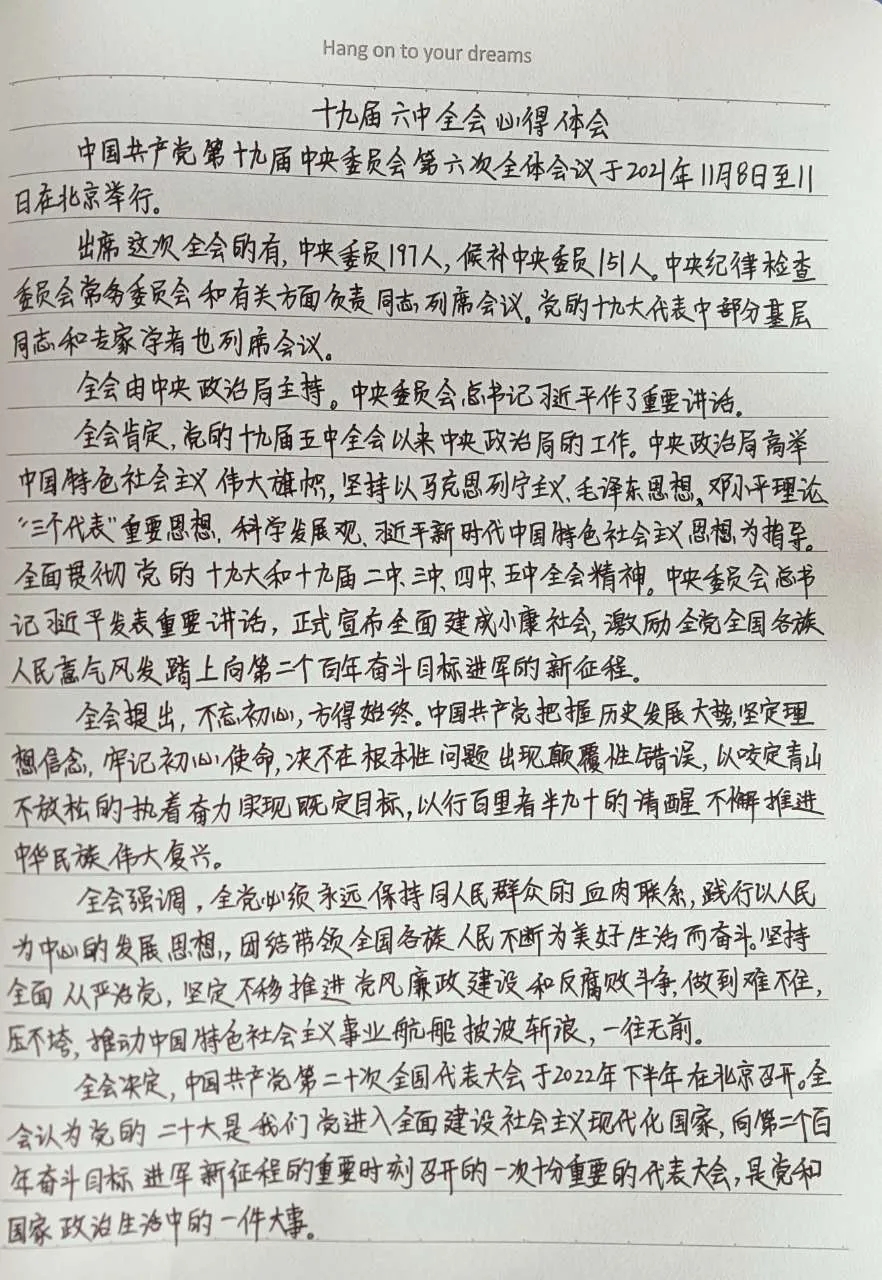 Hang on to your dreams
十九届六中全会心得体会
中国共产党第十九届中央委员会第六次全体会议于2021年11月8日至11
日在北京举行。
出席这次全会的有,中央委员197人,候补中央委员151人。中央纪律检查
委员会常务委员会和有关方面负责同志列席会议。党的十九大代表中部分基层
同志和专家学者也列席会议。
全会由中央政治局主持。中央委员会总书记习近平作了重要讲话。
全会肯定,党的十九届五中全会以来中央政治局的工作。中央政治局高举
中国特色社会主义伟大旗帜,坚持以马克思列宁主义、毛泽东思想、邓小平理论
“三个代表”重要思想、科学发展观、习近平新时代中国特色社会主义思想为指导。
全面贯彻党的十九大和十九届二中、三中、四中、五中全会精神。中央委员会总书
记习近平发表重要讲话,正式宣布全面建成小康社会,激励全党全国各族
人民意气风发踏上向第二个百年奋斗目标进军的新征程。
全会提出,不忘初心,方得始终。中国共产党把握历史发展大势,坚定理
想信念,牢记初心使命,决不在根本性问题出现颠覆性错误,以咬定青山
不放松的执着奋力实现既定目标,以行百里者半九十的清醒不懈推进
中华民族伟大复兴。
全会强调,全党必须永远保持同人民群众的血肉联系,践行以人民
为中心的发展思想,团结带领全国各族人民不断为美好生活而奋斗。坚持
全面从严治党,坚定不移推进党风廉政建设和反腐败斗争,做到难不住,
压不垮,推动中国特色社会主义事业航船披波斩浪,一往无前。
全会决定,中国共产党第二十次全国代表大会于2022年下半年在北京召开。全
会认为党的二十大是我们党进入全面建设社会主义现代化国家,向第二个百
年奋斗目标进军新征程的重要时刻召开的一次十分重要的代表大会,是党和
国家政治生活中的一件大事。